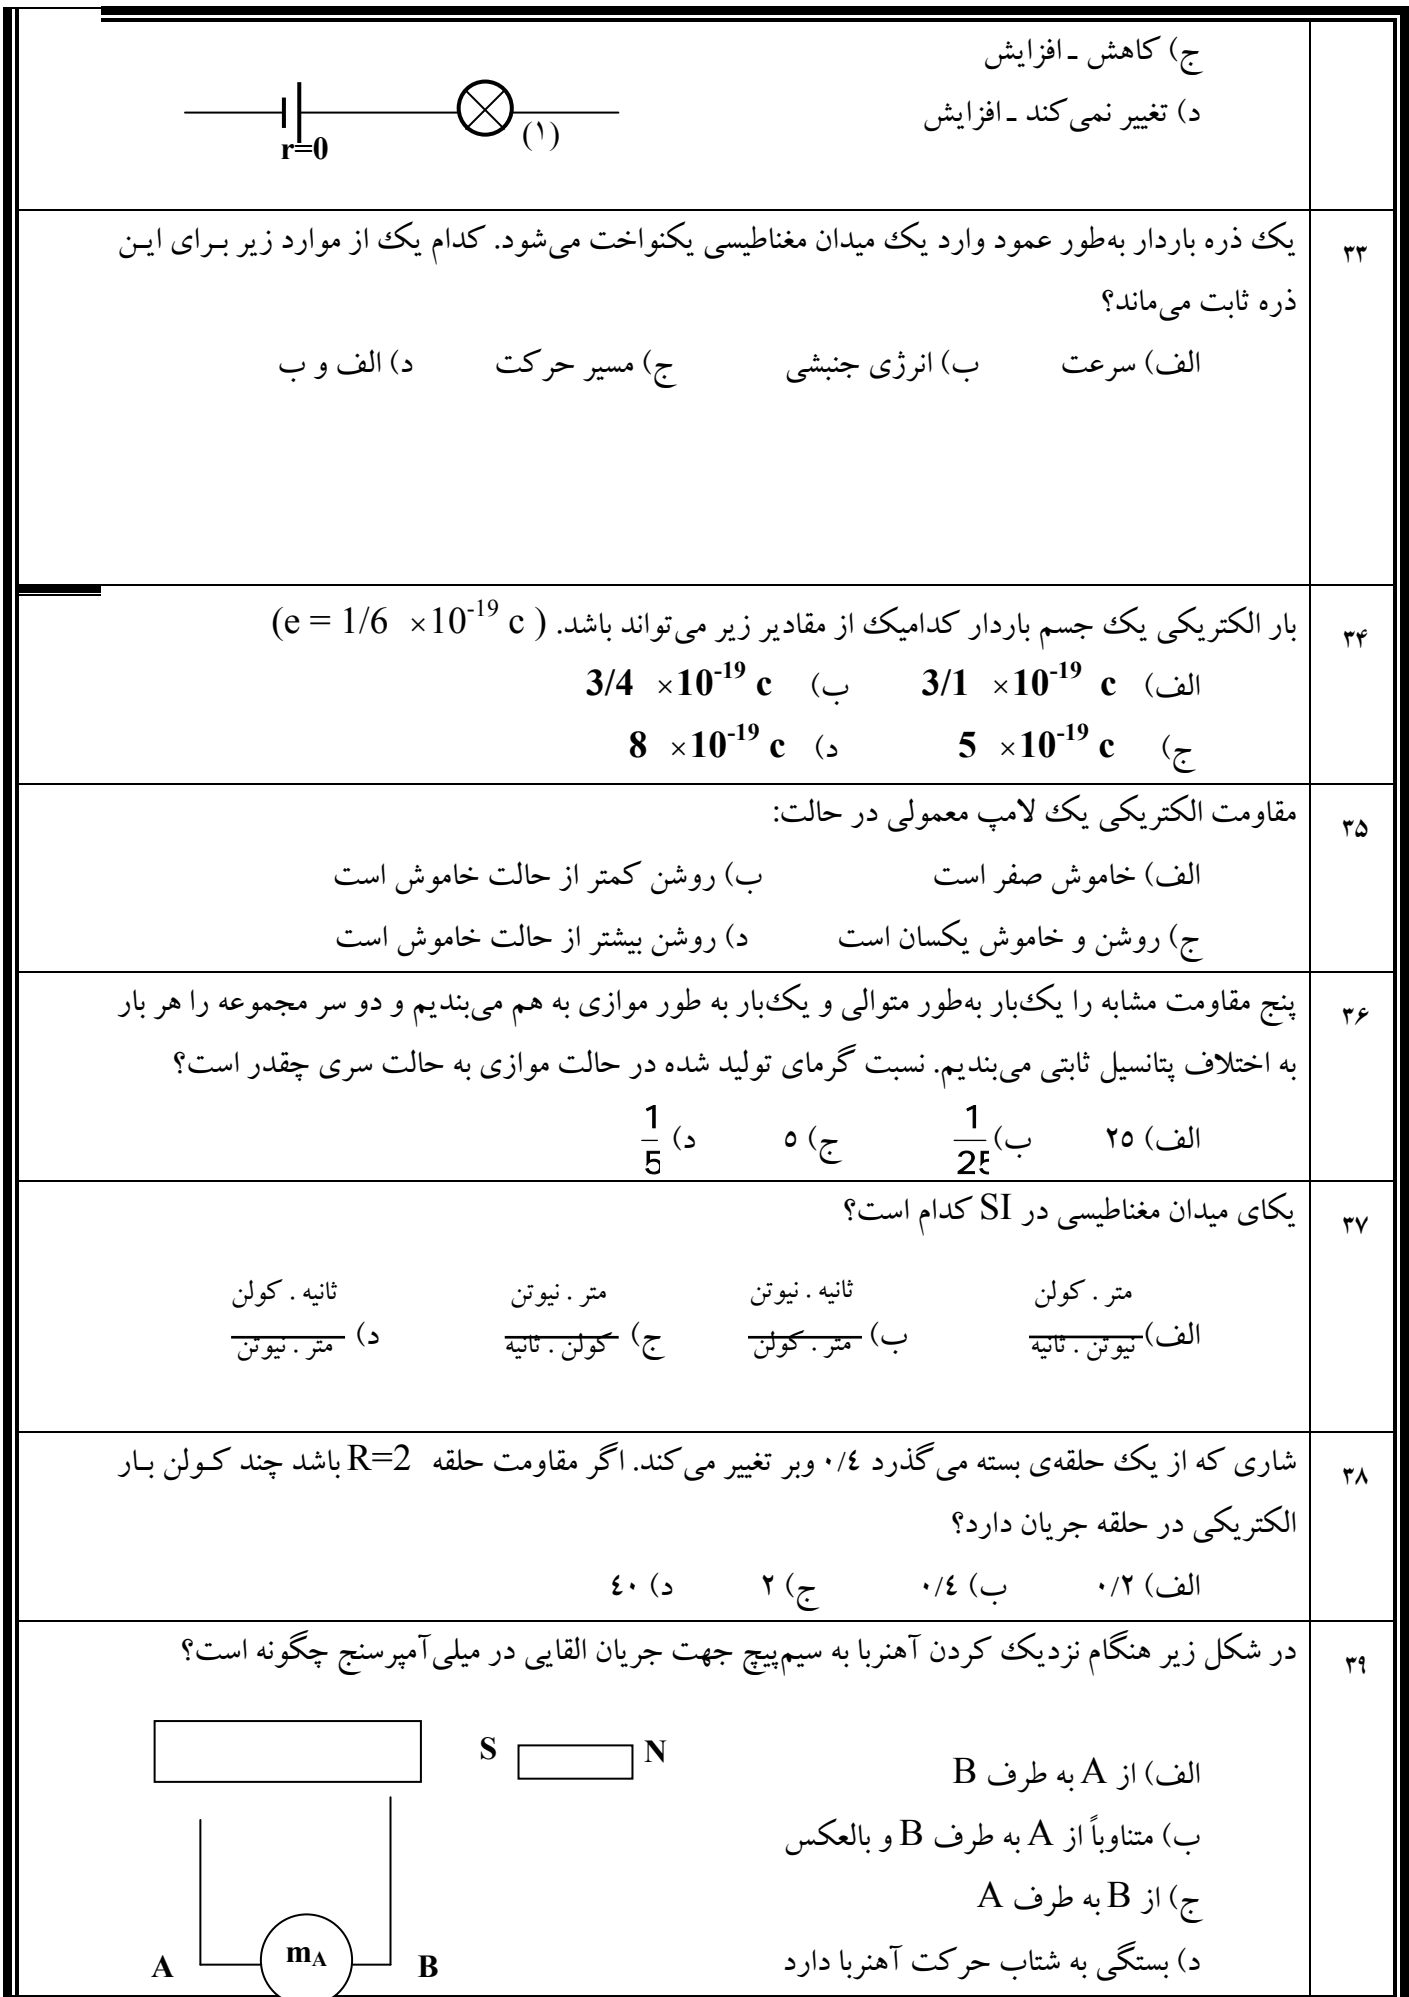 ج) کاهش ـ افزایش
د) تغییر نمی‌کند ـ افزایش
(۱)
r=0
۳۳
یک ذره باردار به‌طور عمود وارد یک میدان مغناطیسی یکنواخت می‌شود. کدام یک از موارد زیر بـرای ایـن
ذره ثابت می‌ماند؟
الف) سرعت ب) انرژی جنبشی ج) مسیر حرکت د) الف و ب
۳۴
بار الکتریکی یک جسم باردار کدامیک از مقادیر زیر می‌تواند باشد. (e = 1/6 ×10^-19 c )
الف) 3/1 ×10^-19 c ب) 3/4 ×10^-19 c
ج) 5 ×10^-19 c د) 8 ×10^-19 c
۳۵
مقاومت الکتریکی یک لامپ معمولی در حالت:
الف) خاموش صفر است ب) روشن کمتر از حالت خاموش است
ج) روشن و خاموش یکسان است د) روشن بیشتر از حالت خاموش است
۳۶
پنج مقاومت مشابه را یک‌بار به‌طور متوالی و یک‌بار به طور موازی به هم می‌بندیم و دو سر مجموعه را هر بار
به اختلاف پتانسیل ثابتی می‌بندیم. نسبت گرمای تولید شده در حالت موازی به حالت سری چقدر است؟
الف) ۲۵ ب) 1/25 ج) ۵ د) 1/5
۳۷
یکای میدان مغناطیسی در SI کدام است؟
متر . کولن ثانیه . نیوتن متر . نیوتن ثانیه . کولن
الف) ب) ج) د)
نیوتن . ثانیه متر . کولن کولن . ثانیه متر . نیوتن
۳۸
شاری که از یک حلقه‌ی بسته می‌گذرد ۰/٤ وبر تغییر می‌کند. اگر مقاومت حلقه R=2 باشد چند کـولن بـار
الکتریکی در حلقه جریان دارد؟
الف) ۰/۲ ب) ۰/٤ ج) ۲ د) ٤۰
۳۹
در شکل زیر هنگام نزدیک کردن آهنربا به سیم‌پیچ جهت جریان القایی در میلی‌آمپرسنج چگونه است؟
S N
الف) از A به طرف B
ب) متناوباً از A به طرف B و بالعکس
ج) از B به طرف A
د) بستگی به شتاب حرکت آهنربا دارد
A mA B